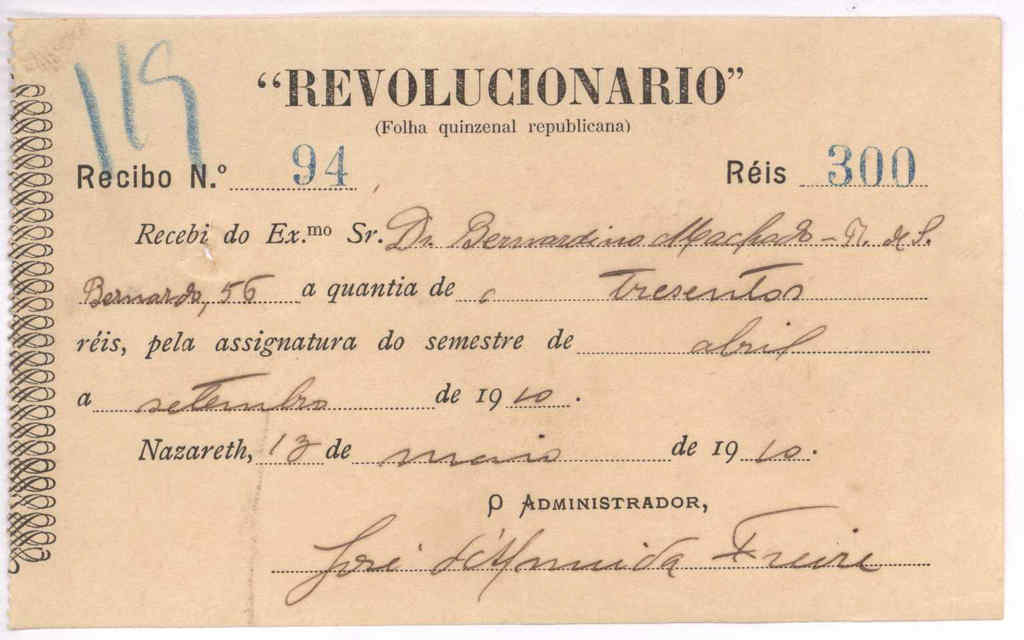 119
“REVOLUCIONARIO”
(Folha quinzenal republicana)
Recibo N.º 94 Réis 300
Recebi do Ex.mo Sr. Dr. Bernardino Machado - T. de S.
Bernardo, 56 a quantia de tresentos
réis, pela assignatura do semestre de abril
a setembro de 1910.
Nazareth, 13 de maio de 1910.
O ADMINISTRADOR,
José d'Almeida Freire